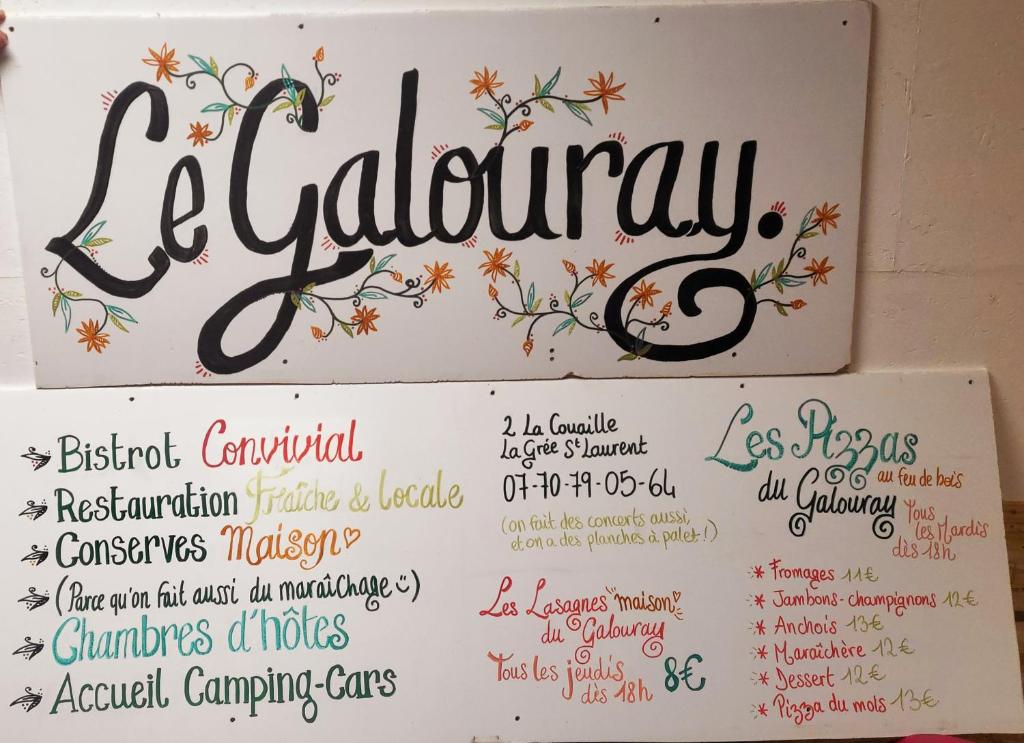 Le Galouray.
Bistrot Convivial
Restauration Fraîche & locale
Conserves Maison
(Parce qu'on fait aussi du maraîchage :)
Chambres d'hôtes
Accueil Camping-Cars
2 La Couaille
La Grée St Laurent
07-70-79-05-64
(on fait des concerts aussi,
et on a des planches à palet!)
Les Lasagnes "maison"
du Galouray
Tous les jeudis
dès 18h 8€
Les Pizzas
au feu de bois
du Galouray
Tous
les Mardis
dès 18h
* Fromages 11€
* Jambons-champignons 12€
* Anchois 13€
* Maraîchère 12€
* Dessert 12€
* Pizza du mois 13€